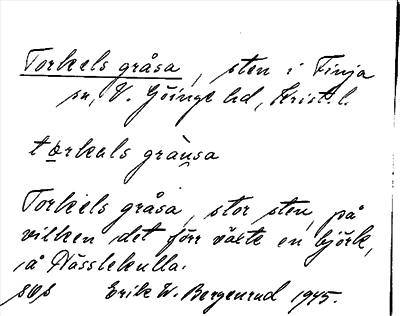 Torkels gråsa, sten i Finja
sn, V. Göinge hd, Krist. l.
tòrkals gràusa
Torkels gråsa, stor sten, på
vilken det förr växte en björk,
på Nässlekulla.
Erik W. Bergenrud 1945.